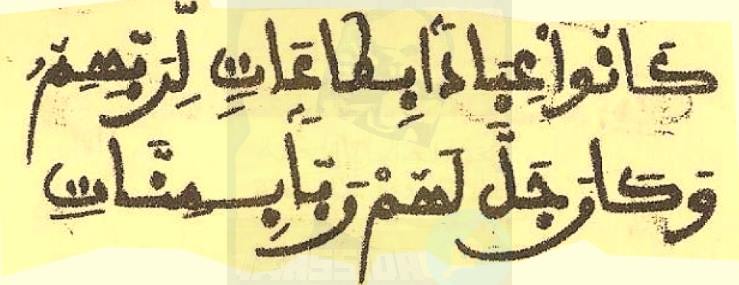 كَانُوا عِبَادًا بِطَاعَاتٍ لِّرَبِّهِمُ
وَكَانَ جَلَّ لَهُمْ رَبًّا بِمِنَّاتِ